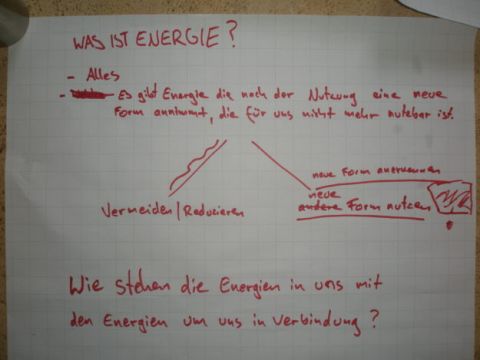 WAS IST ENERGIE?
- Alles
- Es gibt Energie die nach der Nutzung eine neue
Form annimmt, die für uns nicht mehr nutzbar ist.
neue Form anerkennen
neue
Vermeiden/Reduzieren andere Form nutzen
!
Wie stehen die Energien in uns mit
den Energien um uns in Verbindung?